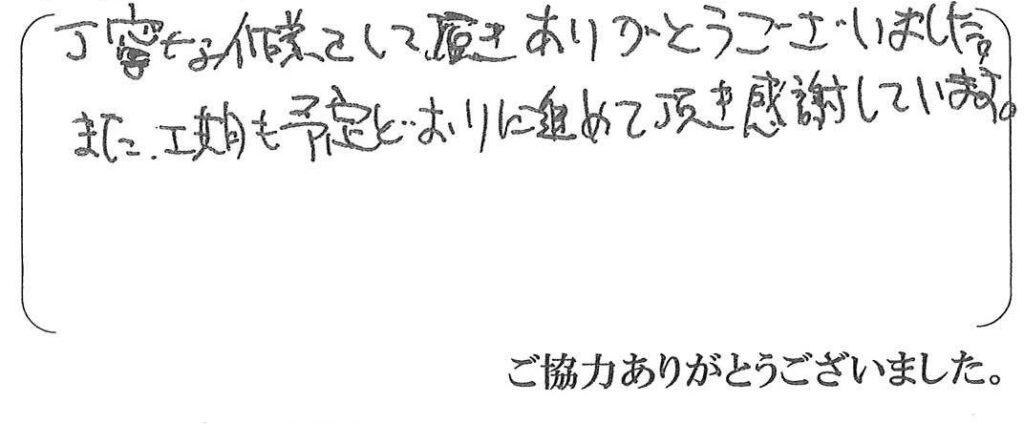 丁寧な作業をして頂きありがとうございました。
また、工期も予定どおりに進めて頂き感謝しています。
ご協力ありがとうございました。